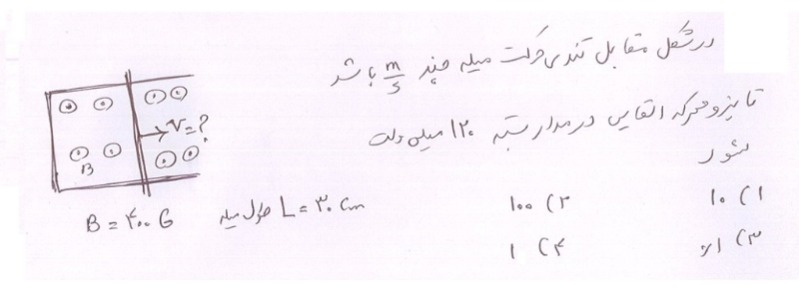 در شکل مقابل تندی حرکت میله چند m/s باشد
تا نیرو محرکه القایی در مدار بسته ۱۲۰ میلی ولت
شود
B
V = ?
B = ۴۰۰ G
L = ۳۰ cm طول میله
۱) ۱۰
۲) ۱۰۰
۳) ۰/۱
۴) ۱